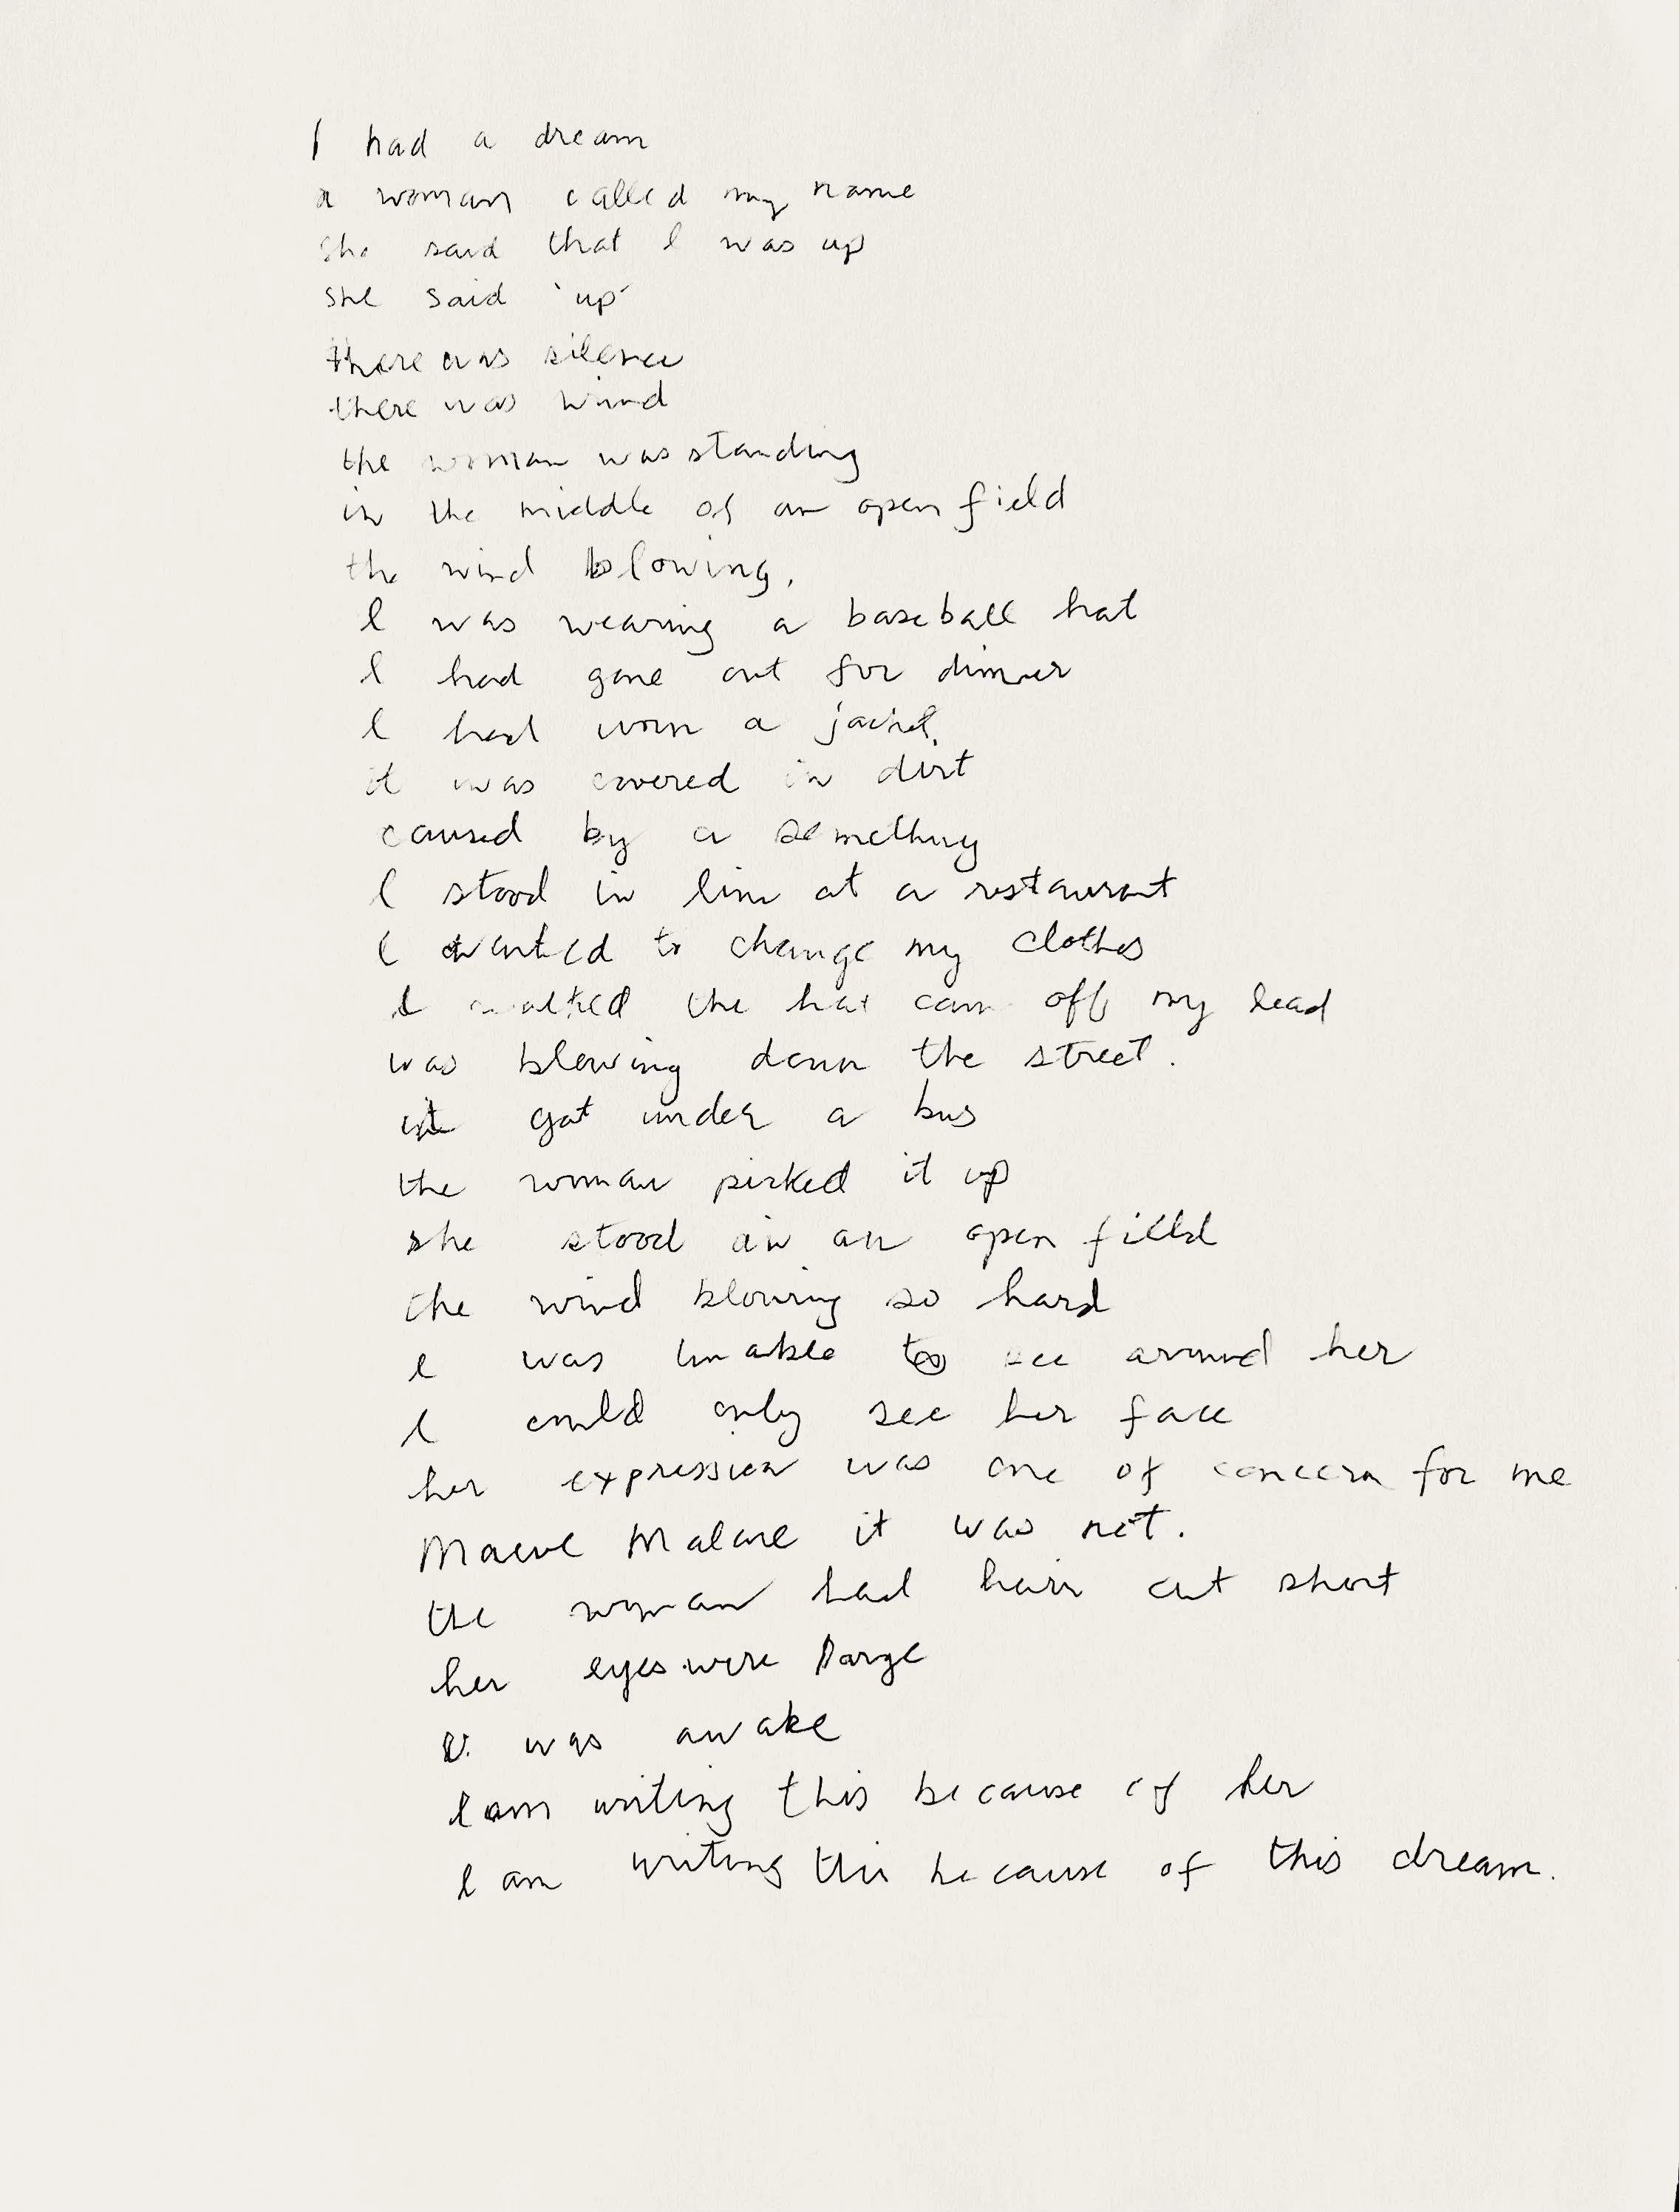 I had a dream
a woman called my name
she said that I was up
she said 'up'
there was silence
there was wind
the woman was standing
in the middle of an open field
the wind blowing.
I was wearing a baseball hat
I had gone out for dinner
I had worn a jacket.
it was covered in dirt
caused by a something
I stood in line at a restaurant
I wanted to change my clothes
I walked the hat came off my head
was blowing down the street.
it got under a bus
the woman picked it up
she stood in an open field
the wind blowing so hard
I was unable to see around her
I could only see her face
her expression was one of concern for me
Maeve Malone it was not.
the woman had hair cut short
her eyes were large
I was awake
I am writing this because of her
I am writing this because of this dream.